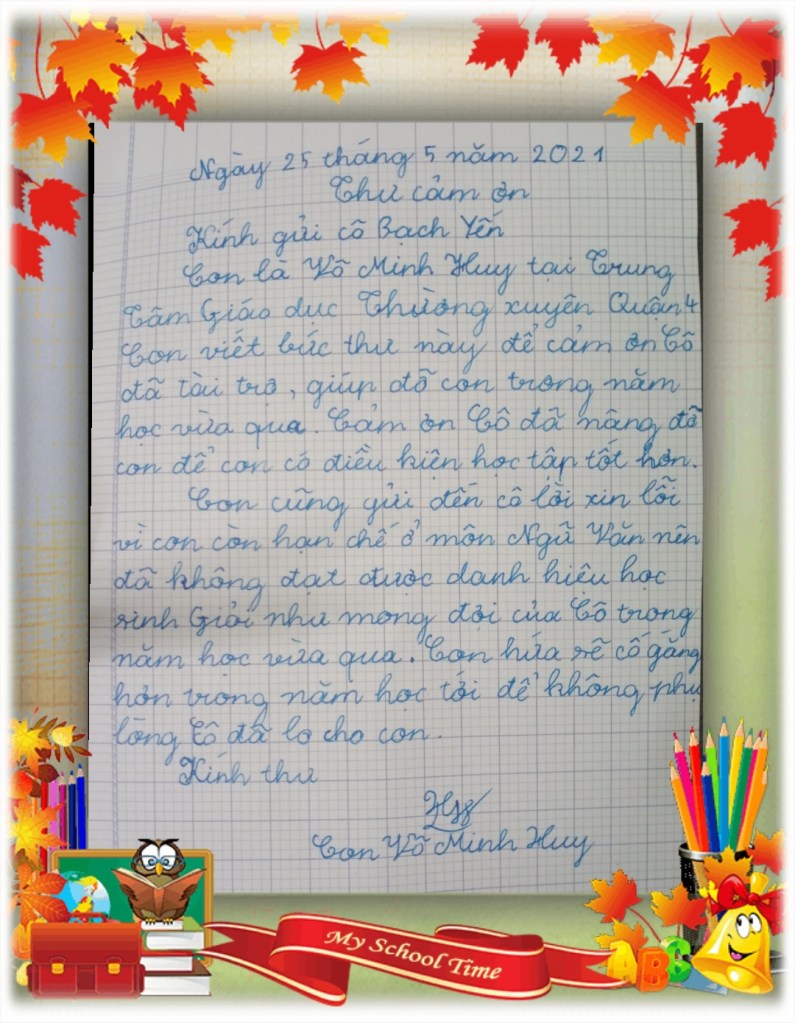 Ngày 25 tháng 5 năm 2021
Thư cảm ơn
Kính gửi cô Bạch Yến
Con là Võ Minh Huy tại Trung
Tâm Giáo dục Thường xuyên Quận 4
Con viết bức thư này để cảm ơn Cô
đã tài trợ, giúp đỡ con trong năm
học vừa qua. Cảm ơn Cô đã nâng đỡ
con để con có điều kiện học tập tốt hơn.
Con cũng gửi đến cô lời xin lỗi
vì con còn hạn chế ở môn Ngữ Văn nên
đã không đạt được danh hiệu học
sinh Giỏi như mong đợi của Cô trong
năm học vừa qua. Con hứa sẽ cố gắng
hơn trong năm học tới để không phụ
lòng Cô đã lo cho con.
Kính thư
Con Võ Minh Huy
My School Time
ABC